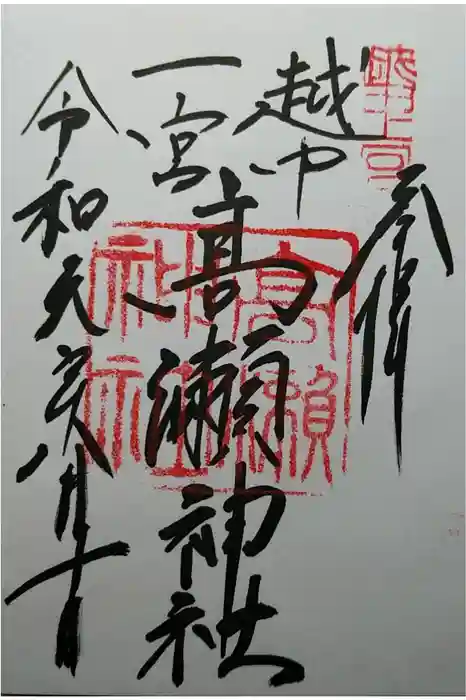 越中一宮
奉拝
越中
一宮
高瀬神社
高瀬神社
令和元年八月十日